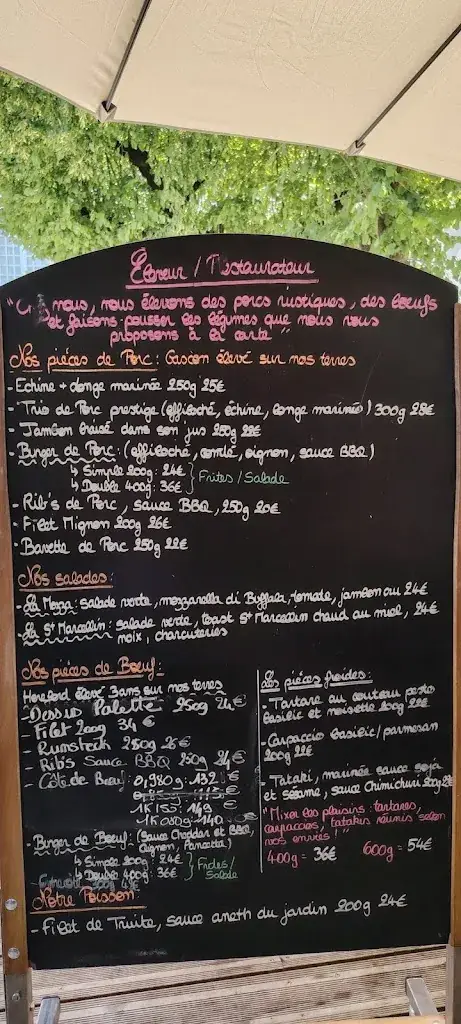 Éleveur / Restaurateur
nous, nous élevons des porcs rustiques, des bœufs
et faisons pousser les légumes que nous vous
proposons à la carte"
Nos pièces de Porc: Gascon élevé sur nos terres
- Echine + longe marinée 250g 25€
- Trio de Porc prestige (effiloché, échine, longe marinée) 300g 28€
- Jambon braisé dans son jus 250g 22€
- Burger de Porc: (effiloché, comté, oignon, sauce BBQ)
↳ Simple 200g: 24€
↳ Double 400g: 36€
Frites/Salade
- Rib's de Porc, sauce BBQ, 250g 20€
- Filet Mignon 200g 26€
- Bavette de Porc 250g 22€
Nos salades:
- La Mozza: salade verte, mozzarella di Buffala, tomate, jambon cru 24€
- La St Marcellin: salade verte, toast St Marcellin chaud au miel, 24€
noix, charcuteries
Nos pièces de Bœuf:
Hereford élevé 3ans sur nos terres
- Dessus Palette 250g 24€
- Filet 200g 34€
- Rumsteak 280g 26€
- Rib's Sauce BBQ 250g 24€
- Côte de Bœuf: 0,980g: 132€
1K153: 149€
1K080g: 140€
- Burger de Bœuf: (Sauce Cheddar et BBQ,
Oignon, Pancetta)
↳ Simple 200g: 24€
↳ Double 400g: 36€
Frites/
Salade
Les pièces froides:
- Tartare au couteau pesto
basilic et noisette 200g 22€
- Carpaccio basilic/parmesan
200g 22€
- Tataki, marinée sauce soja
et sésame, sauce Chimichuri 200g 22€
"Mixer les plaisirs: tartares,
carpaccios, tatakis réunis selon
vos envies!"
400g = 36€ 600g = 54€
Notre Poisson:
- Filet de Truite, sauce aneth du jardin 200g 24€